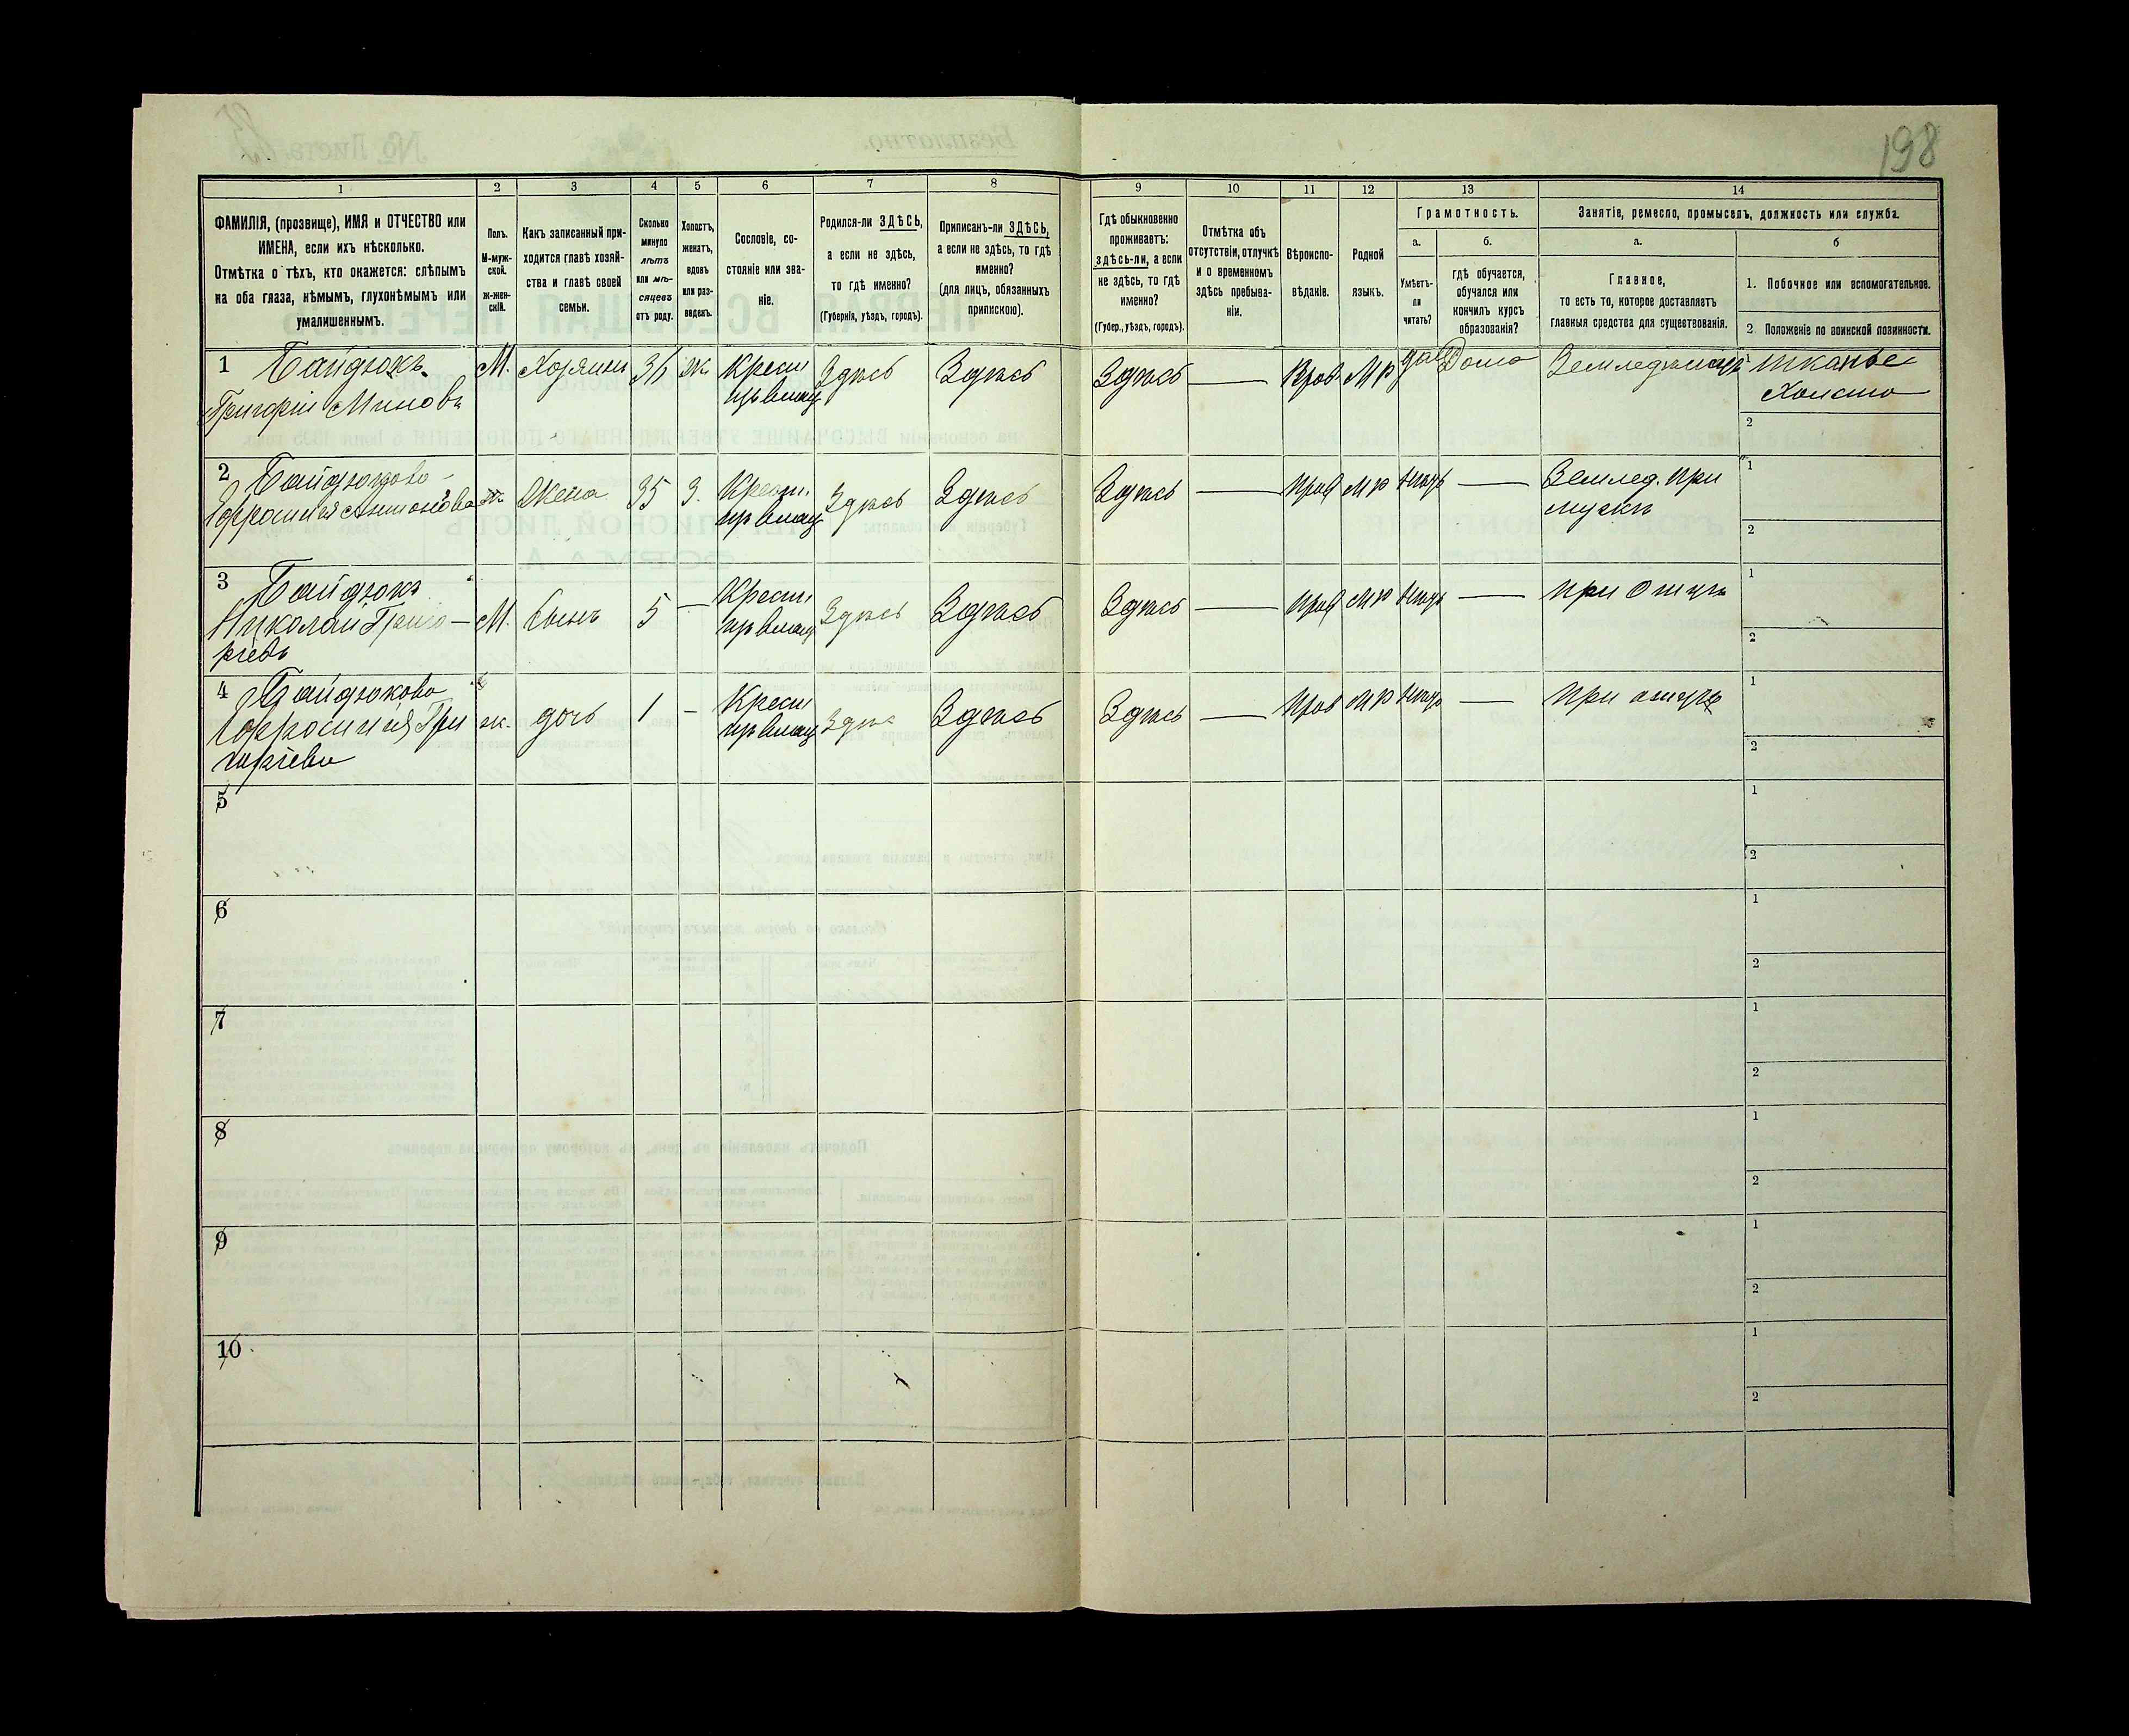 198
1 2 3 4 5 6 7 8 9 10 11 12 13 14
ФАМИЛІЯ, (прозвище), ИМЯ и ОТЧЕСТВО или
ИМЕНА, если ихъ нѣсколько.
Отмѣтка о тѣхъ, кто окажется: слѣпымъ
на оба глаза, нѣмымъ, глухонѣмымъ или
умалишеннымъ.
Полъ.
М-муж-
ской.
Ж-жен-
скій.
Какъ записанный при-
ходится главѣ хозяй-
ства и главѣ своей
семьи.
Сколько
минуло
лѣтъ
или мѣ-
сяцевъ
отъ роду.
Холостъ,
женатъ,
вдовъ
или раз-
веденъ.
Сословіе, со-
стояніе или зва-
ніе.
Родился-ли ЗДѢСЬ,
а если не здѣсь,
то гдѣ именно?
(Губернія, уѣздъ, городъ).
Приписанъ-ли ЗДѢСЬ,
а если не здѣсь, то гдѣ
именно?
(для лицъ, обязанныхъ
припискою).
Гдѣ обыкновенно
проживаетъ:
здѣсь-ли, а если
не здѣсь, то гдѣ
именно?
(Губер., уѣздъ, городъ).
Отмѣтка объ
отсутствіи, отлучкѣ
и о временномъ
здѣсь пребыва-
ніи.
Вѣроиспо-
вѣданіе.
Родной
языкъ.
Грамотность.
а.
Умѣетъ-
ли
читать?
б.
гдѣ обучается,
обучался или
кончилъ курсъ
образованія?
Занятіе, ремесло, промыселъ, должность или служба.
а.
Главное,
то есть то, которое доставляетъ
главныя средства для существованія.
б
1. Побочное или вспомогательное.
2. Положеніе по воинской повинности.
1 Байдюкъ
Григорій Миновъ
М. Хозяинъ 36 ж. Крест
из влад
Здѣсь Здѣсь Здѣсь — Прав. МР да Дома Земледѣлецъ тканье
Холста
2
2 Байдюкова
Ефросинія Антонова
ж Жена 35 З. Крест.
из влад
Здѣсь Здѣсь Здѣсь — Прав МР нѣтъ — Землед. при
мужѣ
1
2
3 Байдюкъ
Николай Григо-
рьевъ
М. Сынъ 5 — Крест
из влад
Здѣсь Здѣсь Здѣсь — Прав МР нѣтъ — при Отцѣ
1
2
4 Байдюкова
Ефросинія Гри
горіева
ж. дочь 1 — Крест
из влад
Здѣсь Здѣсь Здѣсь — Прав МР нѣтъ — при отцѣ
1
2
5
1
2
6
1
2
7
1
2
8
1
2
9
1
2
10
1
2